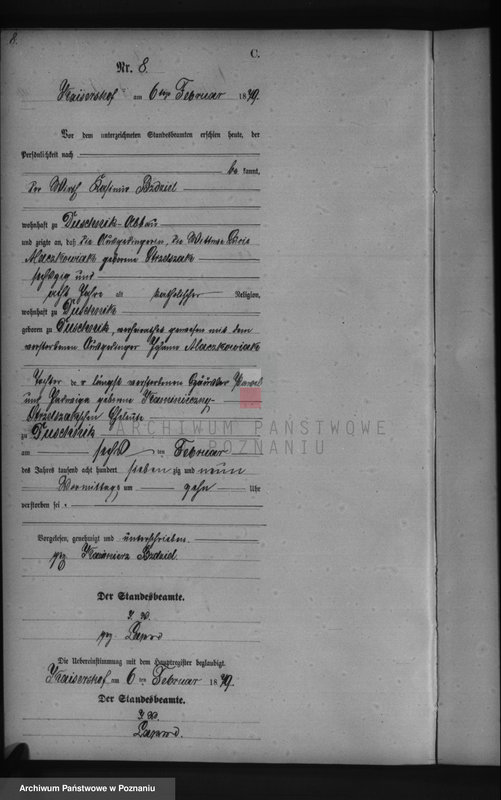 8.
C.
Nr. 8.
Kaisershof am 6ten Februar 1879.
Vor dem unterzeichneten Standesbeamten erschien heute, der
Persönlichkeit nach
be kannt,
der Wirth Kasimir Bzdziel
wohnhaft zu Duschnik-Abbau
und zeigte an, daß die Ausgedingerin, die Wittwe
geborene
sechszig und
acht Jahre alt katholischer Religion,
wohnhaft zu Duschnik
geboren zu Duschnik, verheirathet gewesen mit dem
verstorbenen Ausgedinger
Tochter der längst verstorbenen Häusler Pawel
und Hedwiga geborene
Eheleute
zu Duschnik
am sechs ten Februar
des Jahres tausend acht hundert sieben zig und neun
Vormittags um zehn Uhr
verstorben sei.
Vorgelesen, genehmigt und unterschrieben.
gez Kazimierz Bzdziel
Der Standesbeamte.
J. V.
gez
Die Uebereinstimmung mit dem Hauptregister beglaubigt.
Kaisershof am 6 ten Februar 1879.
Der Standesbeamte.
J. V.
ARCHIWUM PAŃSTWOWE
POZNANIU
Archiwum Państwowe w Poznaniu